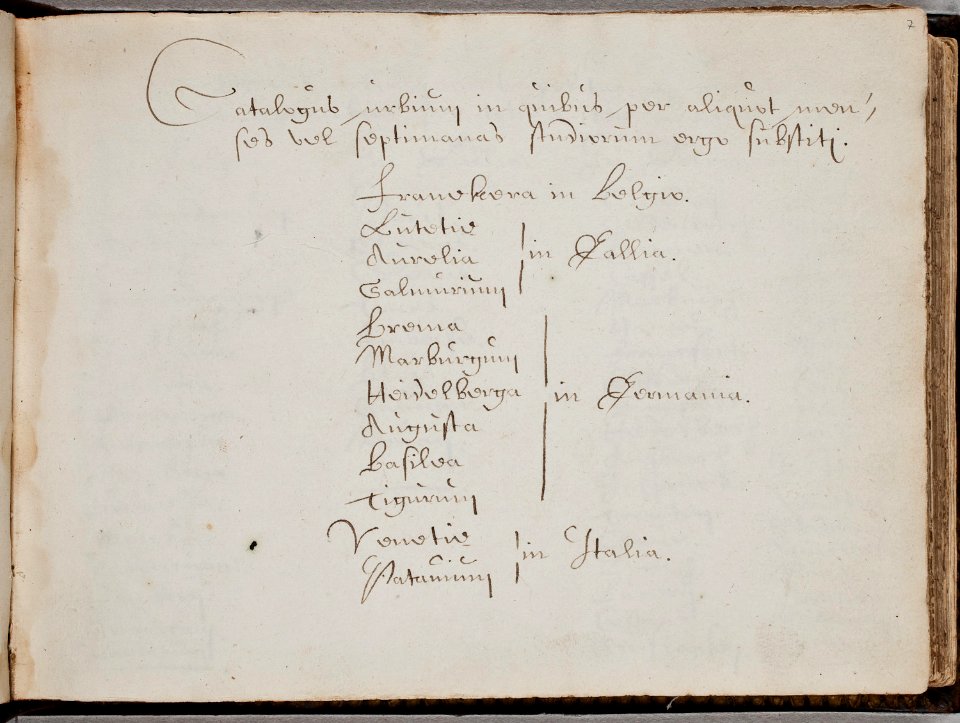 2
Catalogus urbium in quibus per aliquot men-
ses vel septimanas studiorum ergo substiti.
Franekera in Belgio.
Lutetię
Aurelia in Gallia.
Salmurium
Brema
Marburgum
Heidelberga in Germania.
Augusta
Basilea
Tigurum
Venetię
in Italia.
Patavium